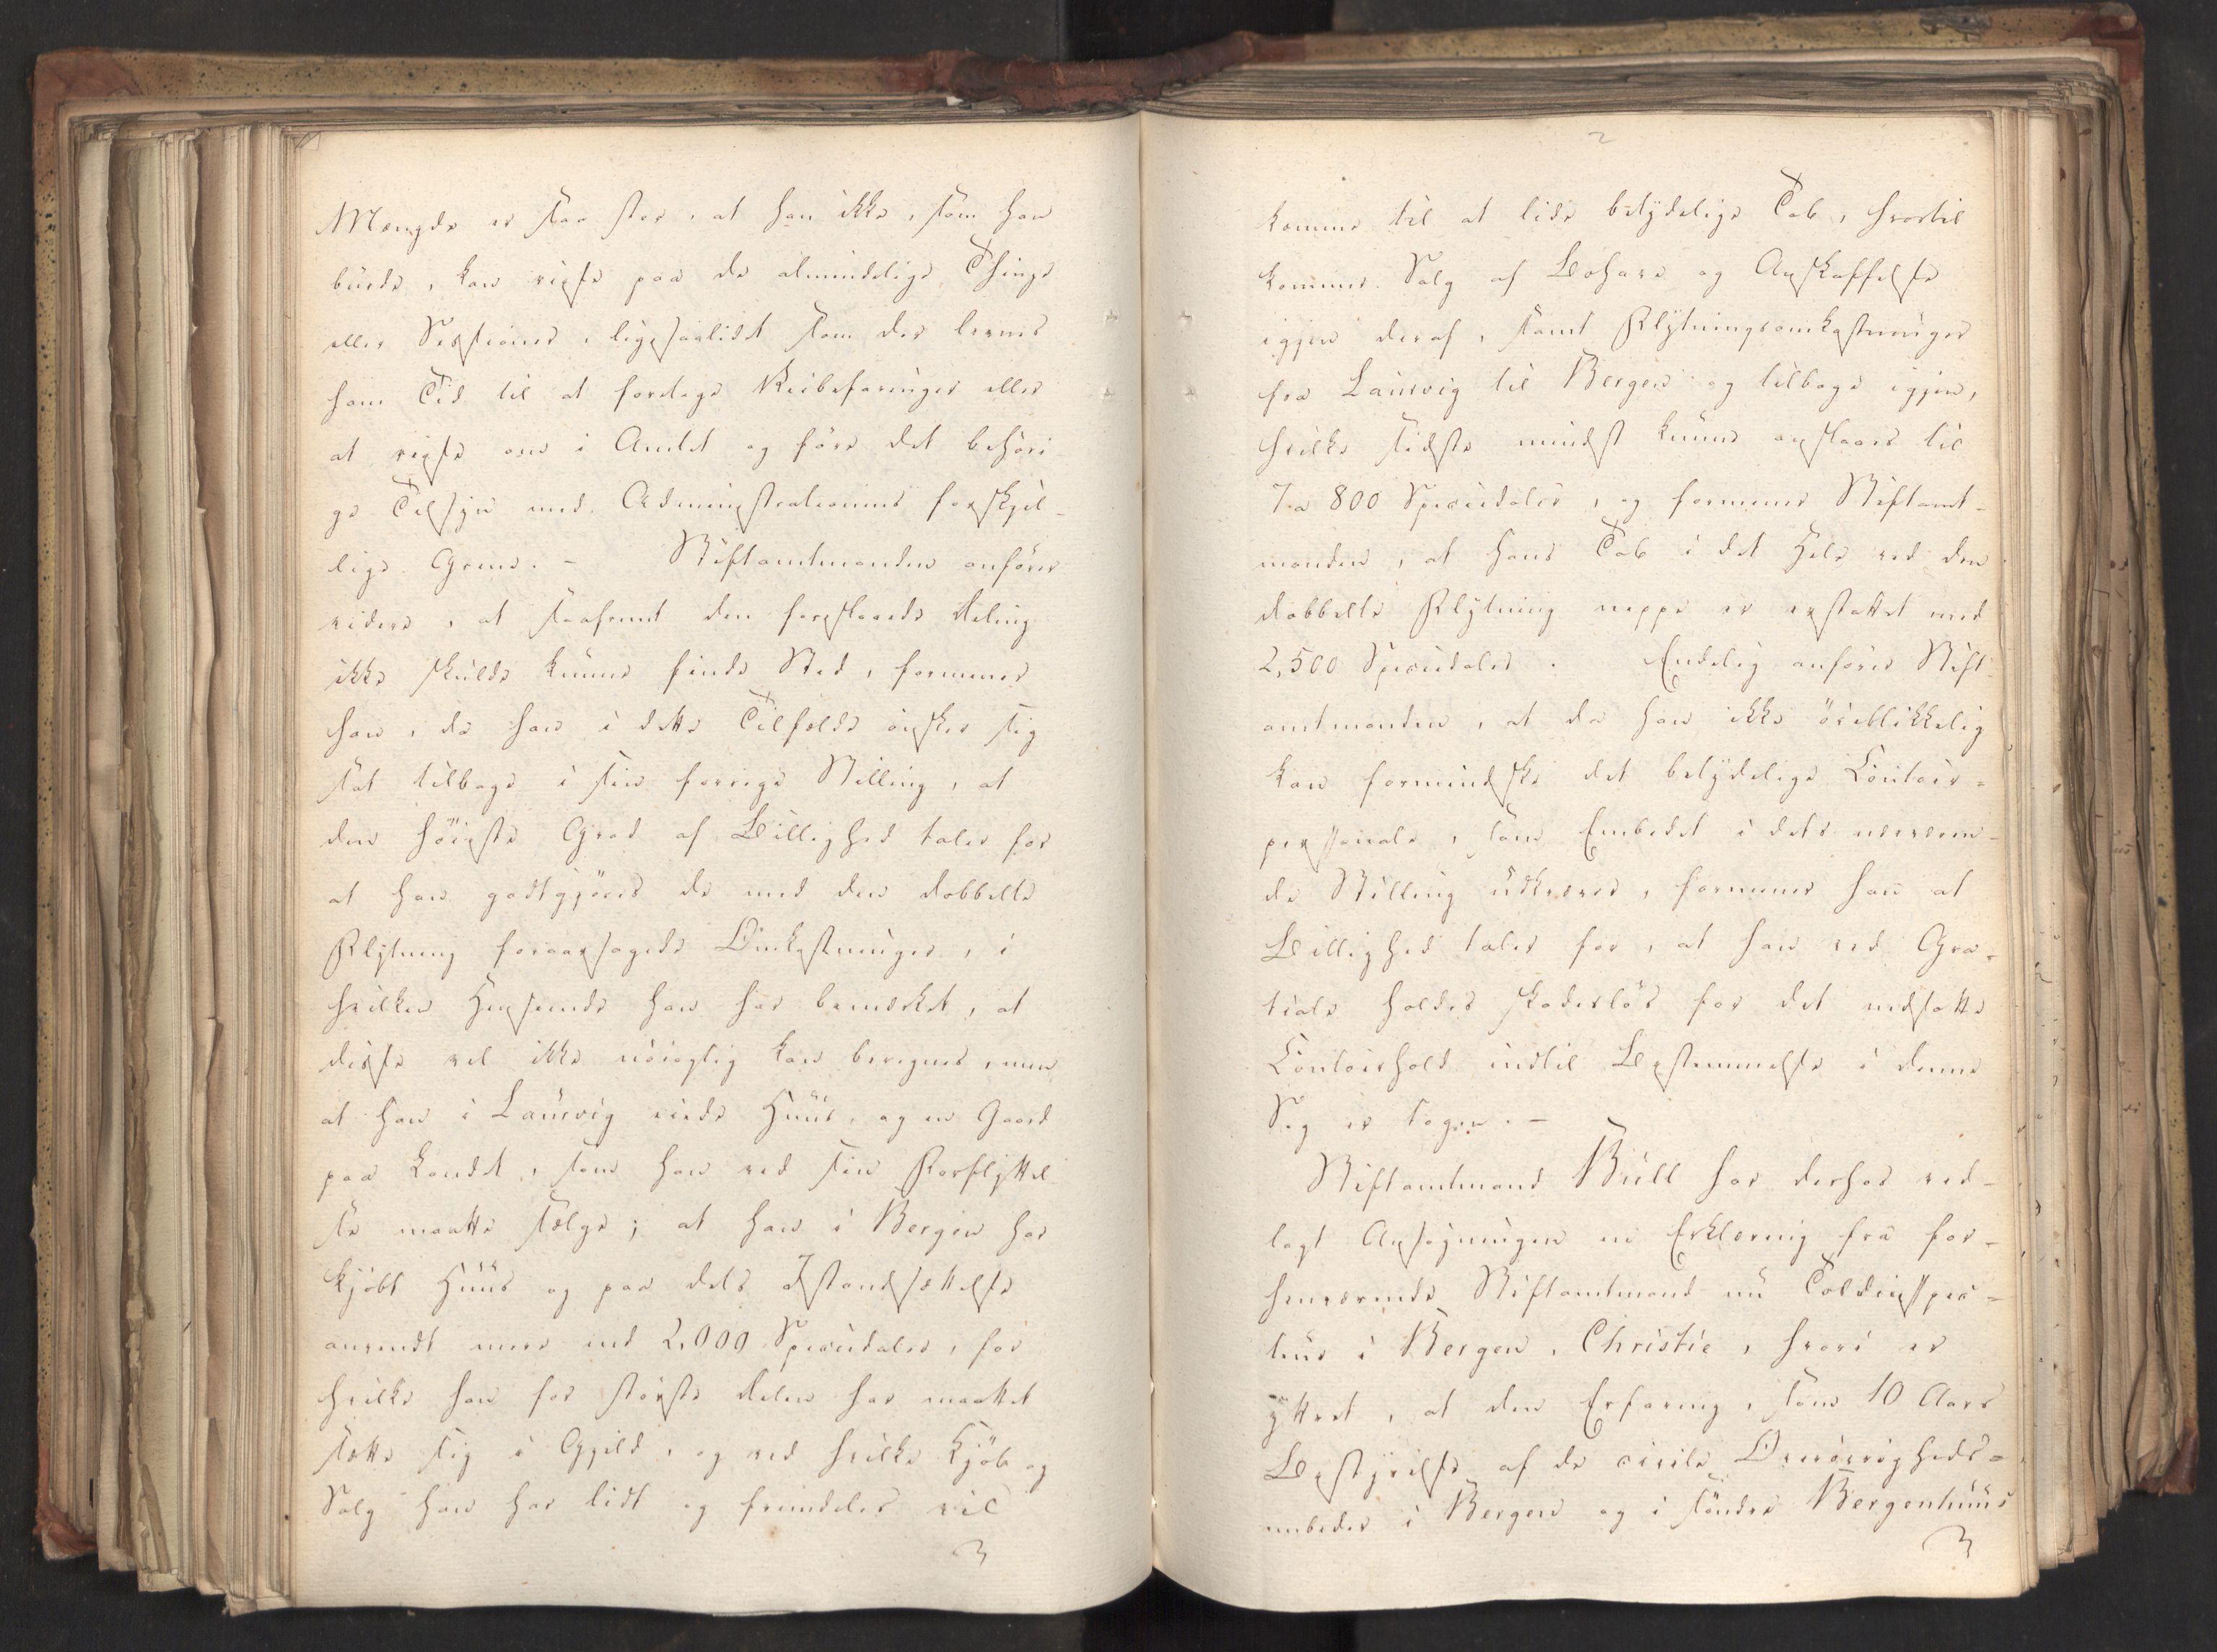 Mængde er saa stor, at han ikke, som han
burde, kan reise paa de almindelige Thinge
eller Sessioner, ligesaalidt som der levnes
ham Tid til at foretage Veibefaringer eller
at reise om i Amtet og føre det behöri
ge Tilsyn med Administrationens forskjel-
lige Grene. - Stiftamtmanden anfører
videre, at saafremt den foreslaaede Deling
ikke skulde kunne finde Sted, formener
han, da han i dette Tilfælde önsker sig
sat tilbage i sin forrige Stilling, at
den höieste Grad af Billighed taler for
at han godtgjöres de med den dobbelte
Flytning foraarsagede Omkostninger, i
hvilken Henseende han har bemærket, at
disse vel ikke nöiagtig kan beregnes, men
at han i Laurvig eiede Huus, og en Gaard
paa Landet, som han ved sin Forflyttel
se maatte sælge; at han i Bergen har
kjöbt Huus og paa dets Istandsættelse
anvendt mere end 2,000 Speciedaler, for
hvilke han for störste Delen har maattet
sætte sig i Gjeld, og ved hvilke Kjöb og
Salg han har lidt og fremdeles vil
2
komme til at lide betydelige Tab, hvortil
kommer Salg af Löhave og Anskaffelse
igjen deraf, samt Flytningsomkostninger
fra Laurvig til Bergen og tilbage igjen,
hvilke sidste mindst kunne anslaaes til
7 a 800 Speciedaler, og formener Stiftamt-
manden, at hans Tab i det Hele ved den
dobbelte Flytning neppe er erstattet med
2,500 Speciedaler. Endelig anfører Stift
amtmanden, at da han ikke öieblikkelig
kan formindske det betydelige Contoir-
personale, som Embedet i dets nærværen-
de Stilling udkræver, formener han at
Billighed taler for, at han ved Gra-
tiale holdes skadeslös for det nedsatte
Contoirhold indtil Bestemmelse i denne
Sag er tagen. -
Stiftamtmand Bull har derhos ved-
lagt Ansøgningen en Erklæring fra for-
henværende Stiftamtmand nu Toldinspec-
teur i Bergen, Christie, hvori er
yttret, at den Erfaring, som 10 Aars
Bestyrelse af de civile Øvrighheds-
embeder i Bergen og i söndre Bergenhuus